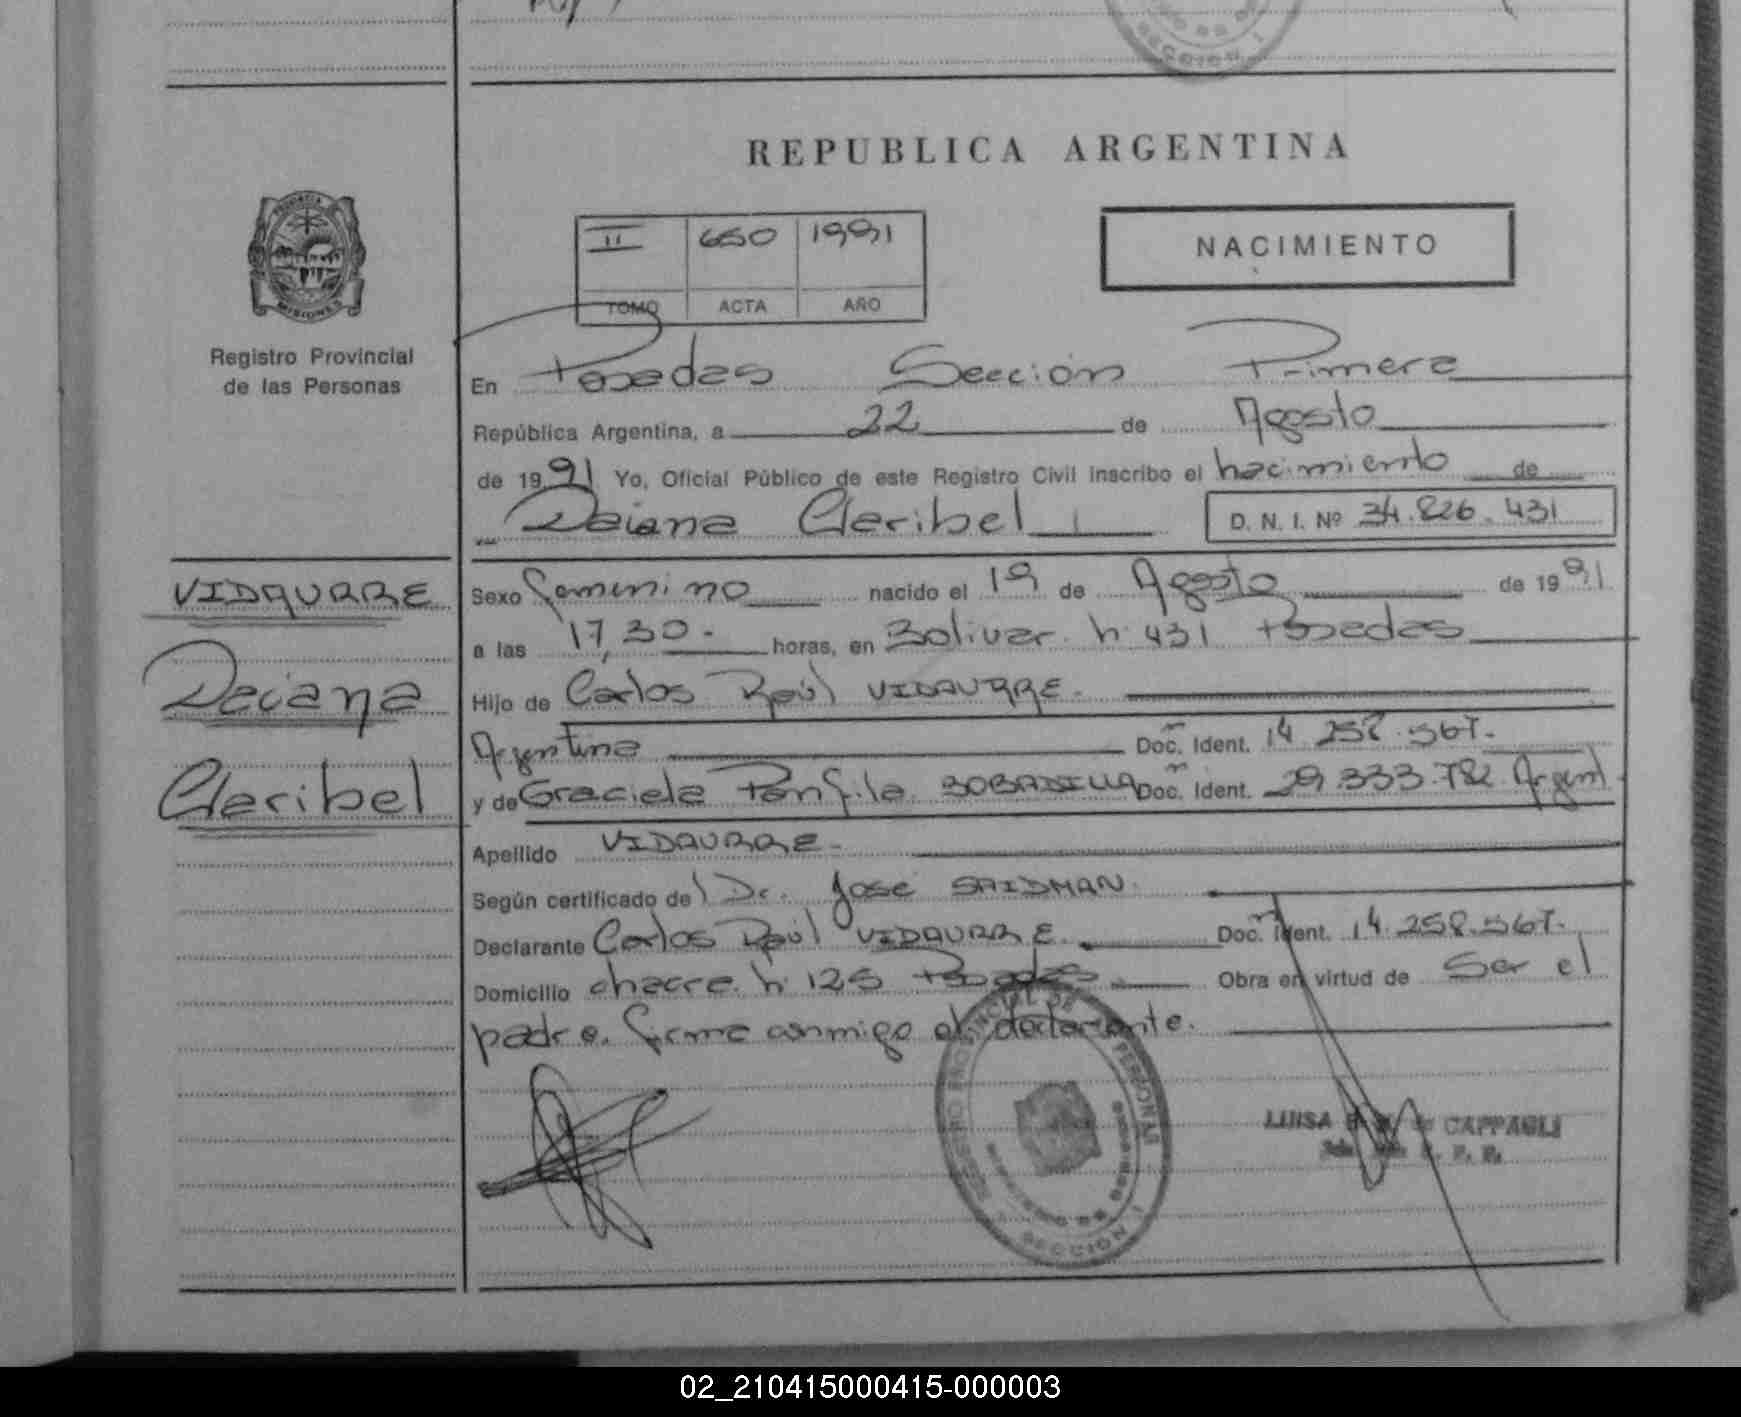 REPUBLICA ARGENTINA
PROVINCIA
MISIONES
Registro Provincial
de las Personas
II 650 1991
TOMO ACTA AÑO
NACIMIENTO
En Posadas Sección Primera
República Argentina, a 22 de Agosto
de 1991 Yo, Oficial Público de este Registro Civil inscribo el nacimiento de
Daiana Claribel
D. N. I. Nº 34.826.431
VIDAURRE
Daiana
Claribel
Sexo femenino nacido el 19 de Agosto de 1991
a las 17,30. horas, en Bolivar. n. 431 Posadas
Hijo de Carlos Raúl VIDAURRE.
Argentina Doc. Ident. 14.258.567.
y de Graciela Panfila BOBADILLA Doc. Ident. 29.333.782 Argent
Apellido VIDAURRE.
Según certificado del Dr. José SAIDMAN.
Declarante Carlos Raúl VIDAURRE. Doc. Ident. 14.258.567.
Domicilio chacra. n. 125 Posadas. Obra en virtud de Ser el
padre. firma conmigo el declarante.
REGISTRO PROVINCIAL DE PERSONAS
SECCION I
LUISA CAPPAGLI
SECCION I
02_210415000415-000003